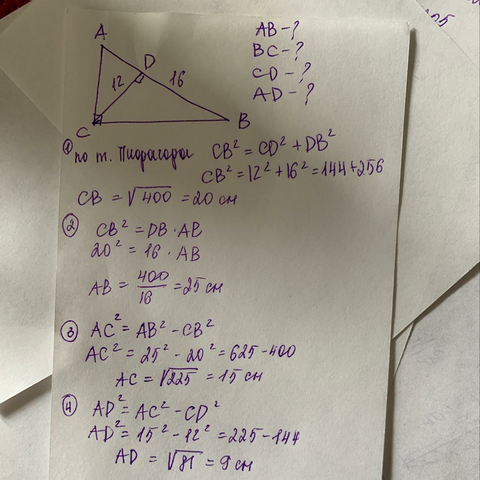 AB - ?
BC - ?
CD - ?
AD - ?
A
D
12
16
C
B
① по т. Пифагора CB² = CD² + DB²
CB² = 12² + 16² = 144 + 256
CB = √400 = 20 см
② CB² = DB · AB
20² = 16 · AB
AB = 400/16 = 25 см
③ AC² = AB² - CB²
AC² = 25² - 20² = 625 - 400
AC = √225 = 15 см
④ AD² = AC² - CD²
AD² = 15² - 12² = 225 - 144
AD = √81 = 9 см